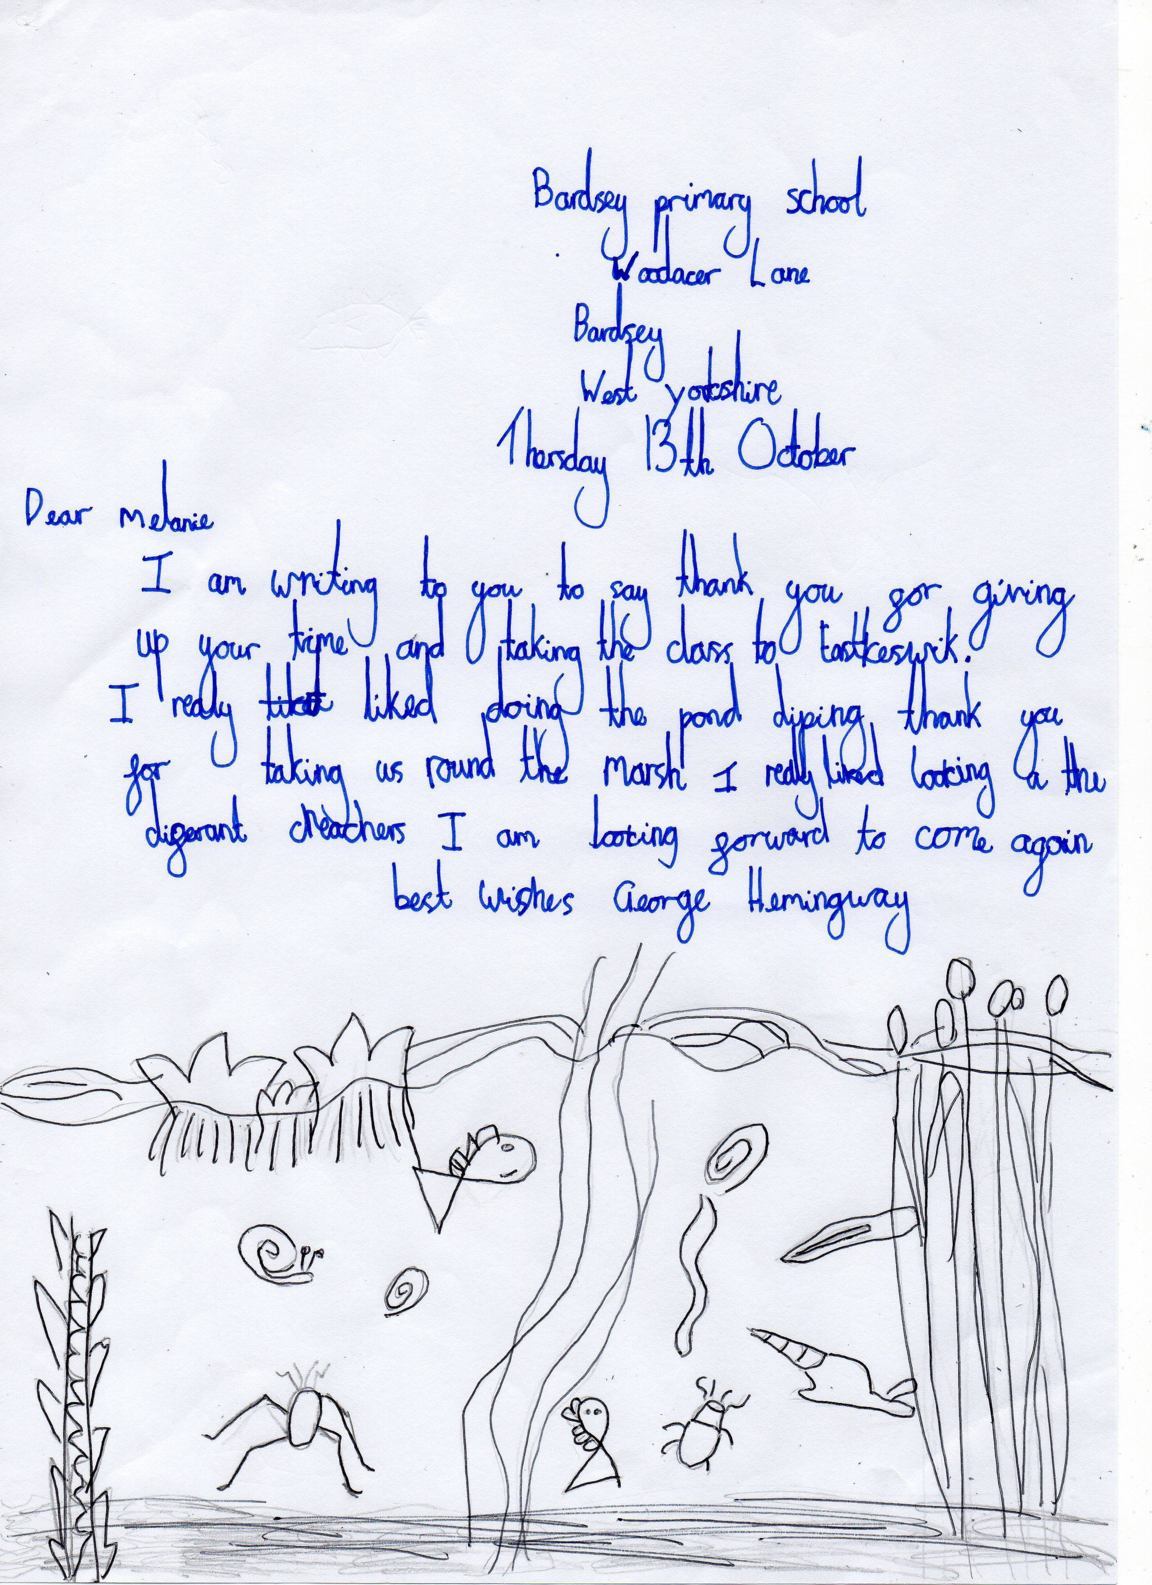 Bardsey primary school
Woodacer Lane
Bardsey
West yorkshire
Thersday 13th October
Dear Melanie
I am writing to you to say thank you for giving
up your time and taking the class to
I realy liked doing the pond diping thank you
for taking us round the Marsh I really liked looking a the
diferant I am looking forward to come again
best wishes George Hemingway